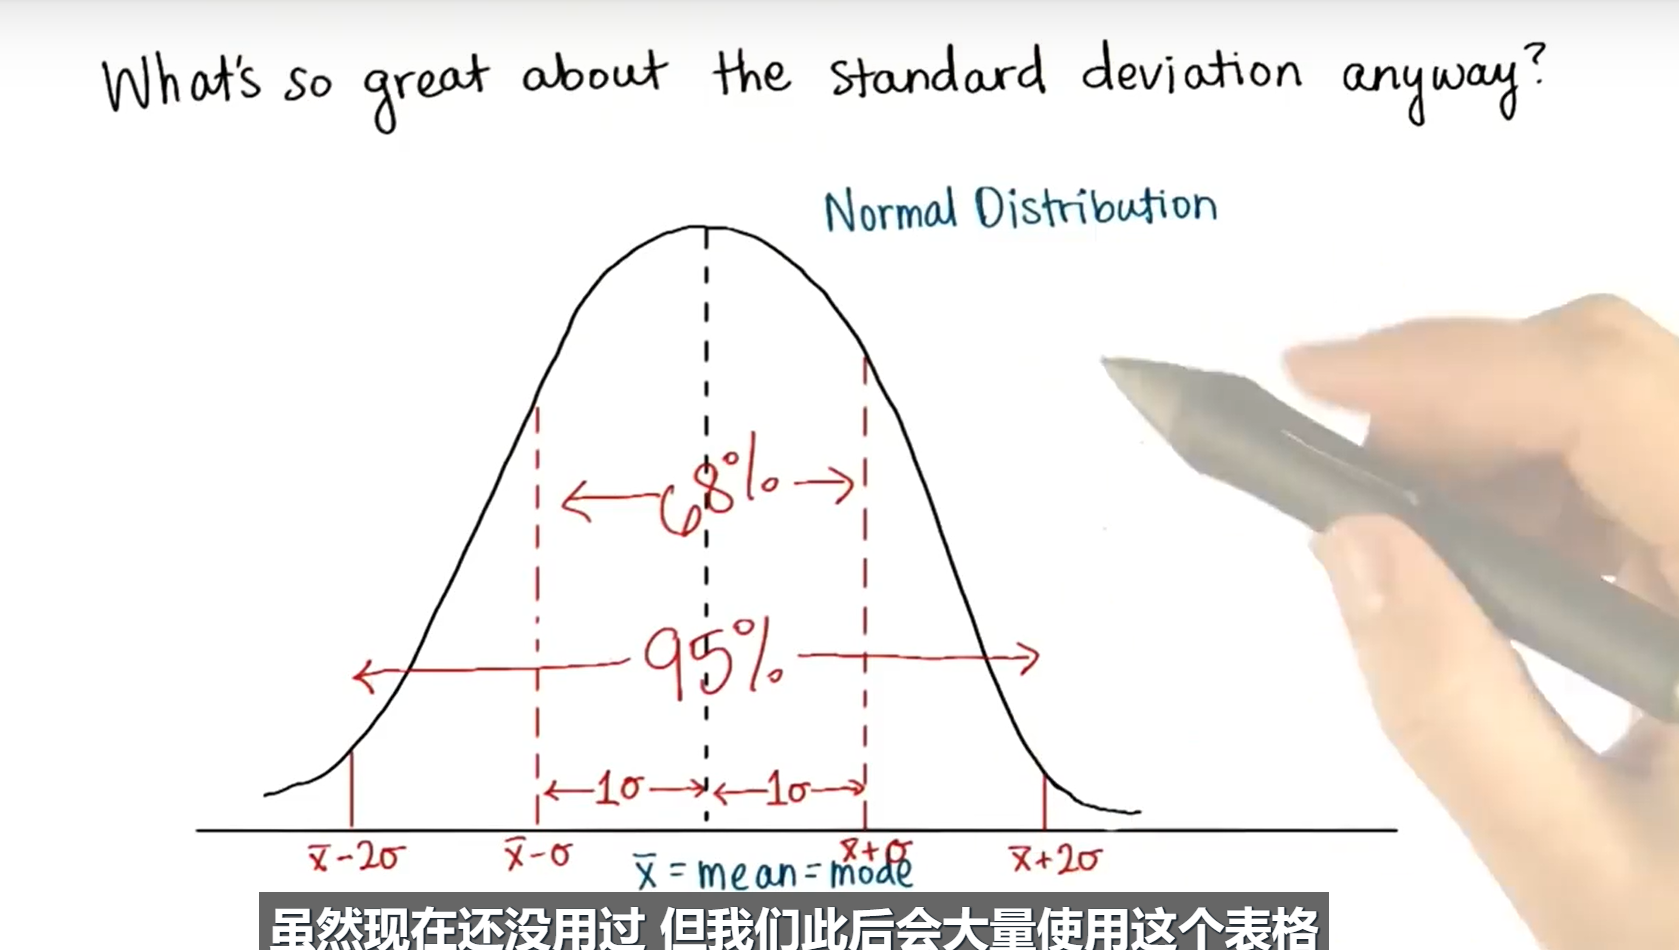 What's so great about the standard deviation anyway?
Normal Distribution
68%
95%
1σ 1σ
x̄-2σ x̄-σ x̄+σ x̄+2σ
x̄ = mean = mode
虽然现在还没用过 但我们此后会大量使用这个表格